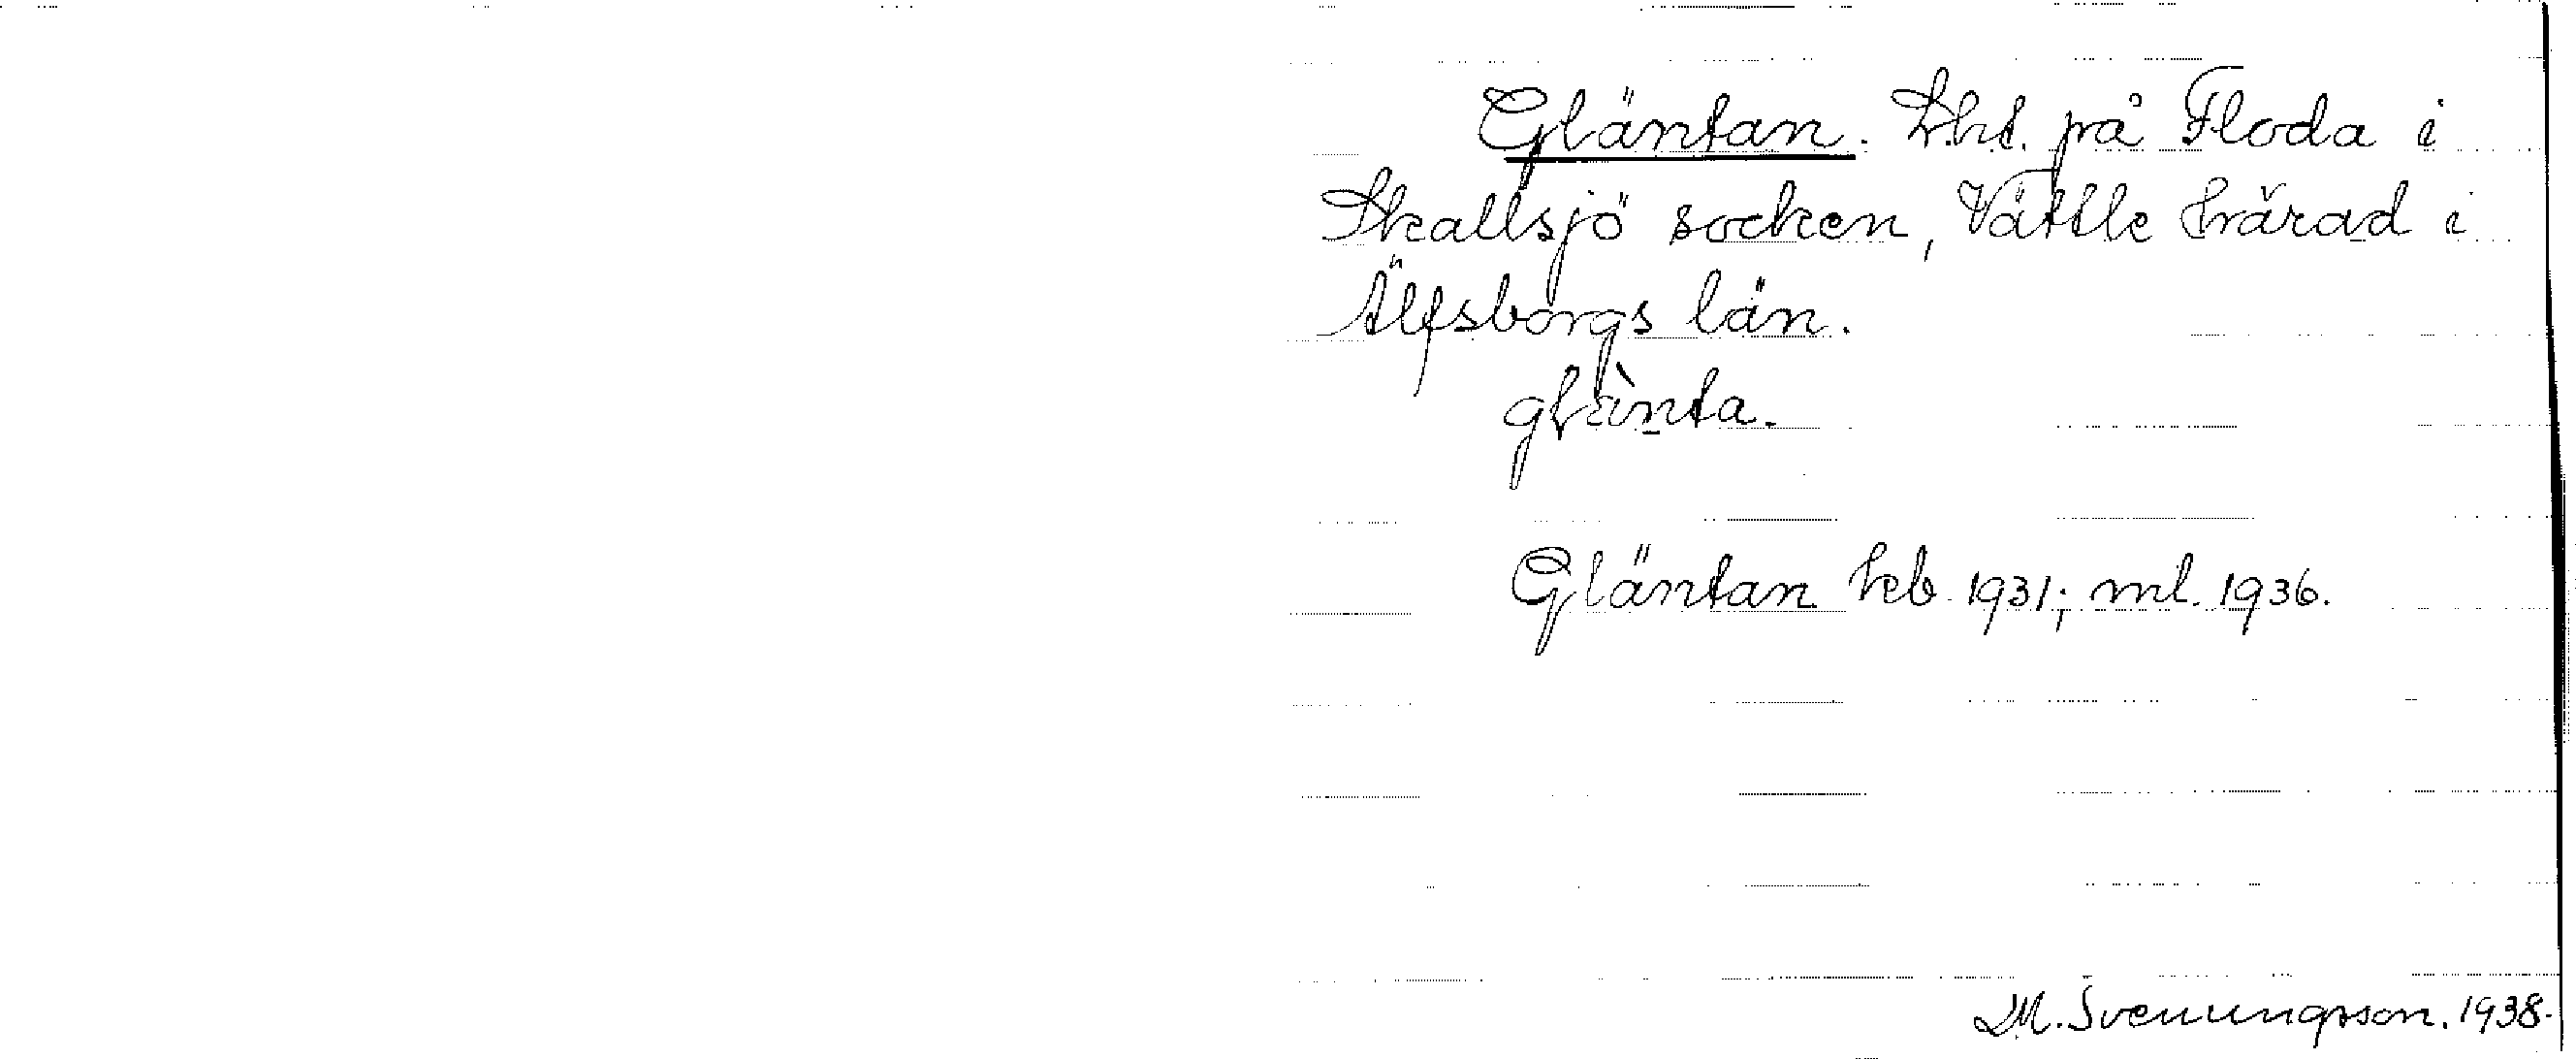 Gläntan. Lht. på Floda i
Skallsjö socken, Vättle härad i
Älfsborgs län.
glànta.
Gläntan kb 1931; ml. 1936.
M. Svenungsson. 1938.